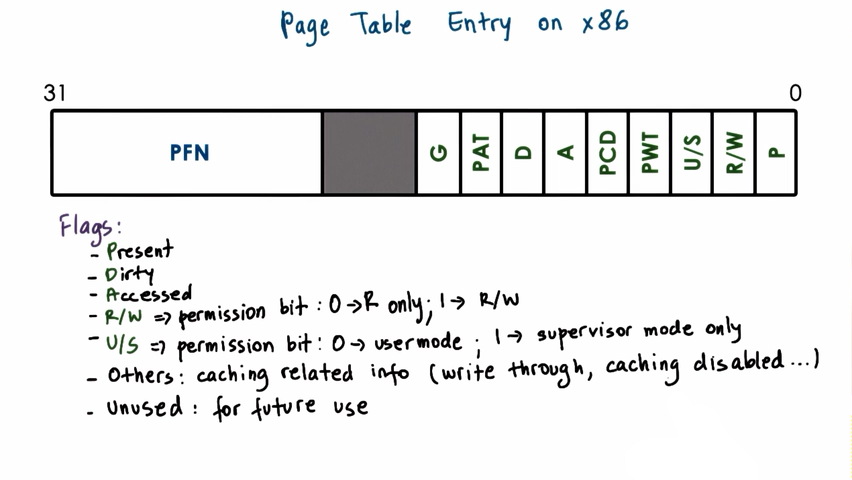 Page Table Entry on x86
31 0
PFN G PAT D A PCD PWT U/S R/W P
Flags:
- Present
- Dirty
- Accessed
- R/W => permission bit : 0 → R only; 1 → R/W
- U/S => permission bit : 0 → usermode ; 1 → supervisor mode only
- Others : caching related info (write through, caching disabled ...)
- Unused : for future use